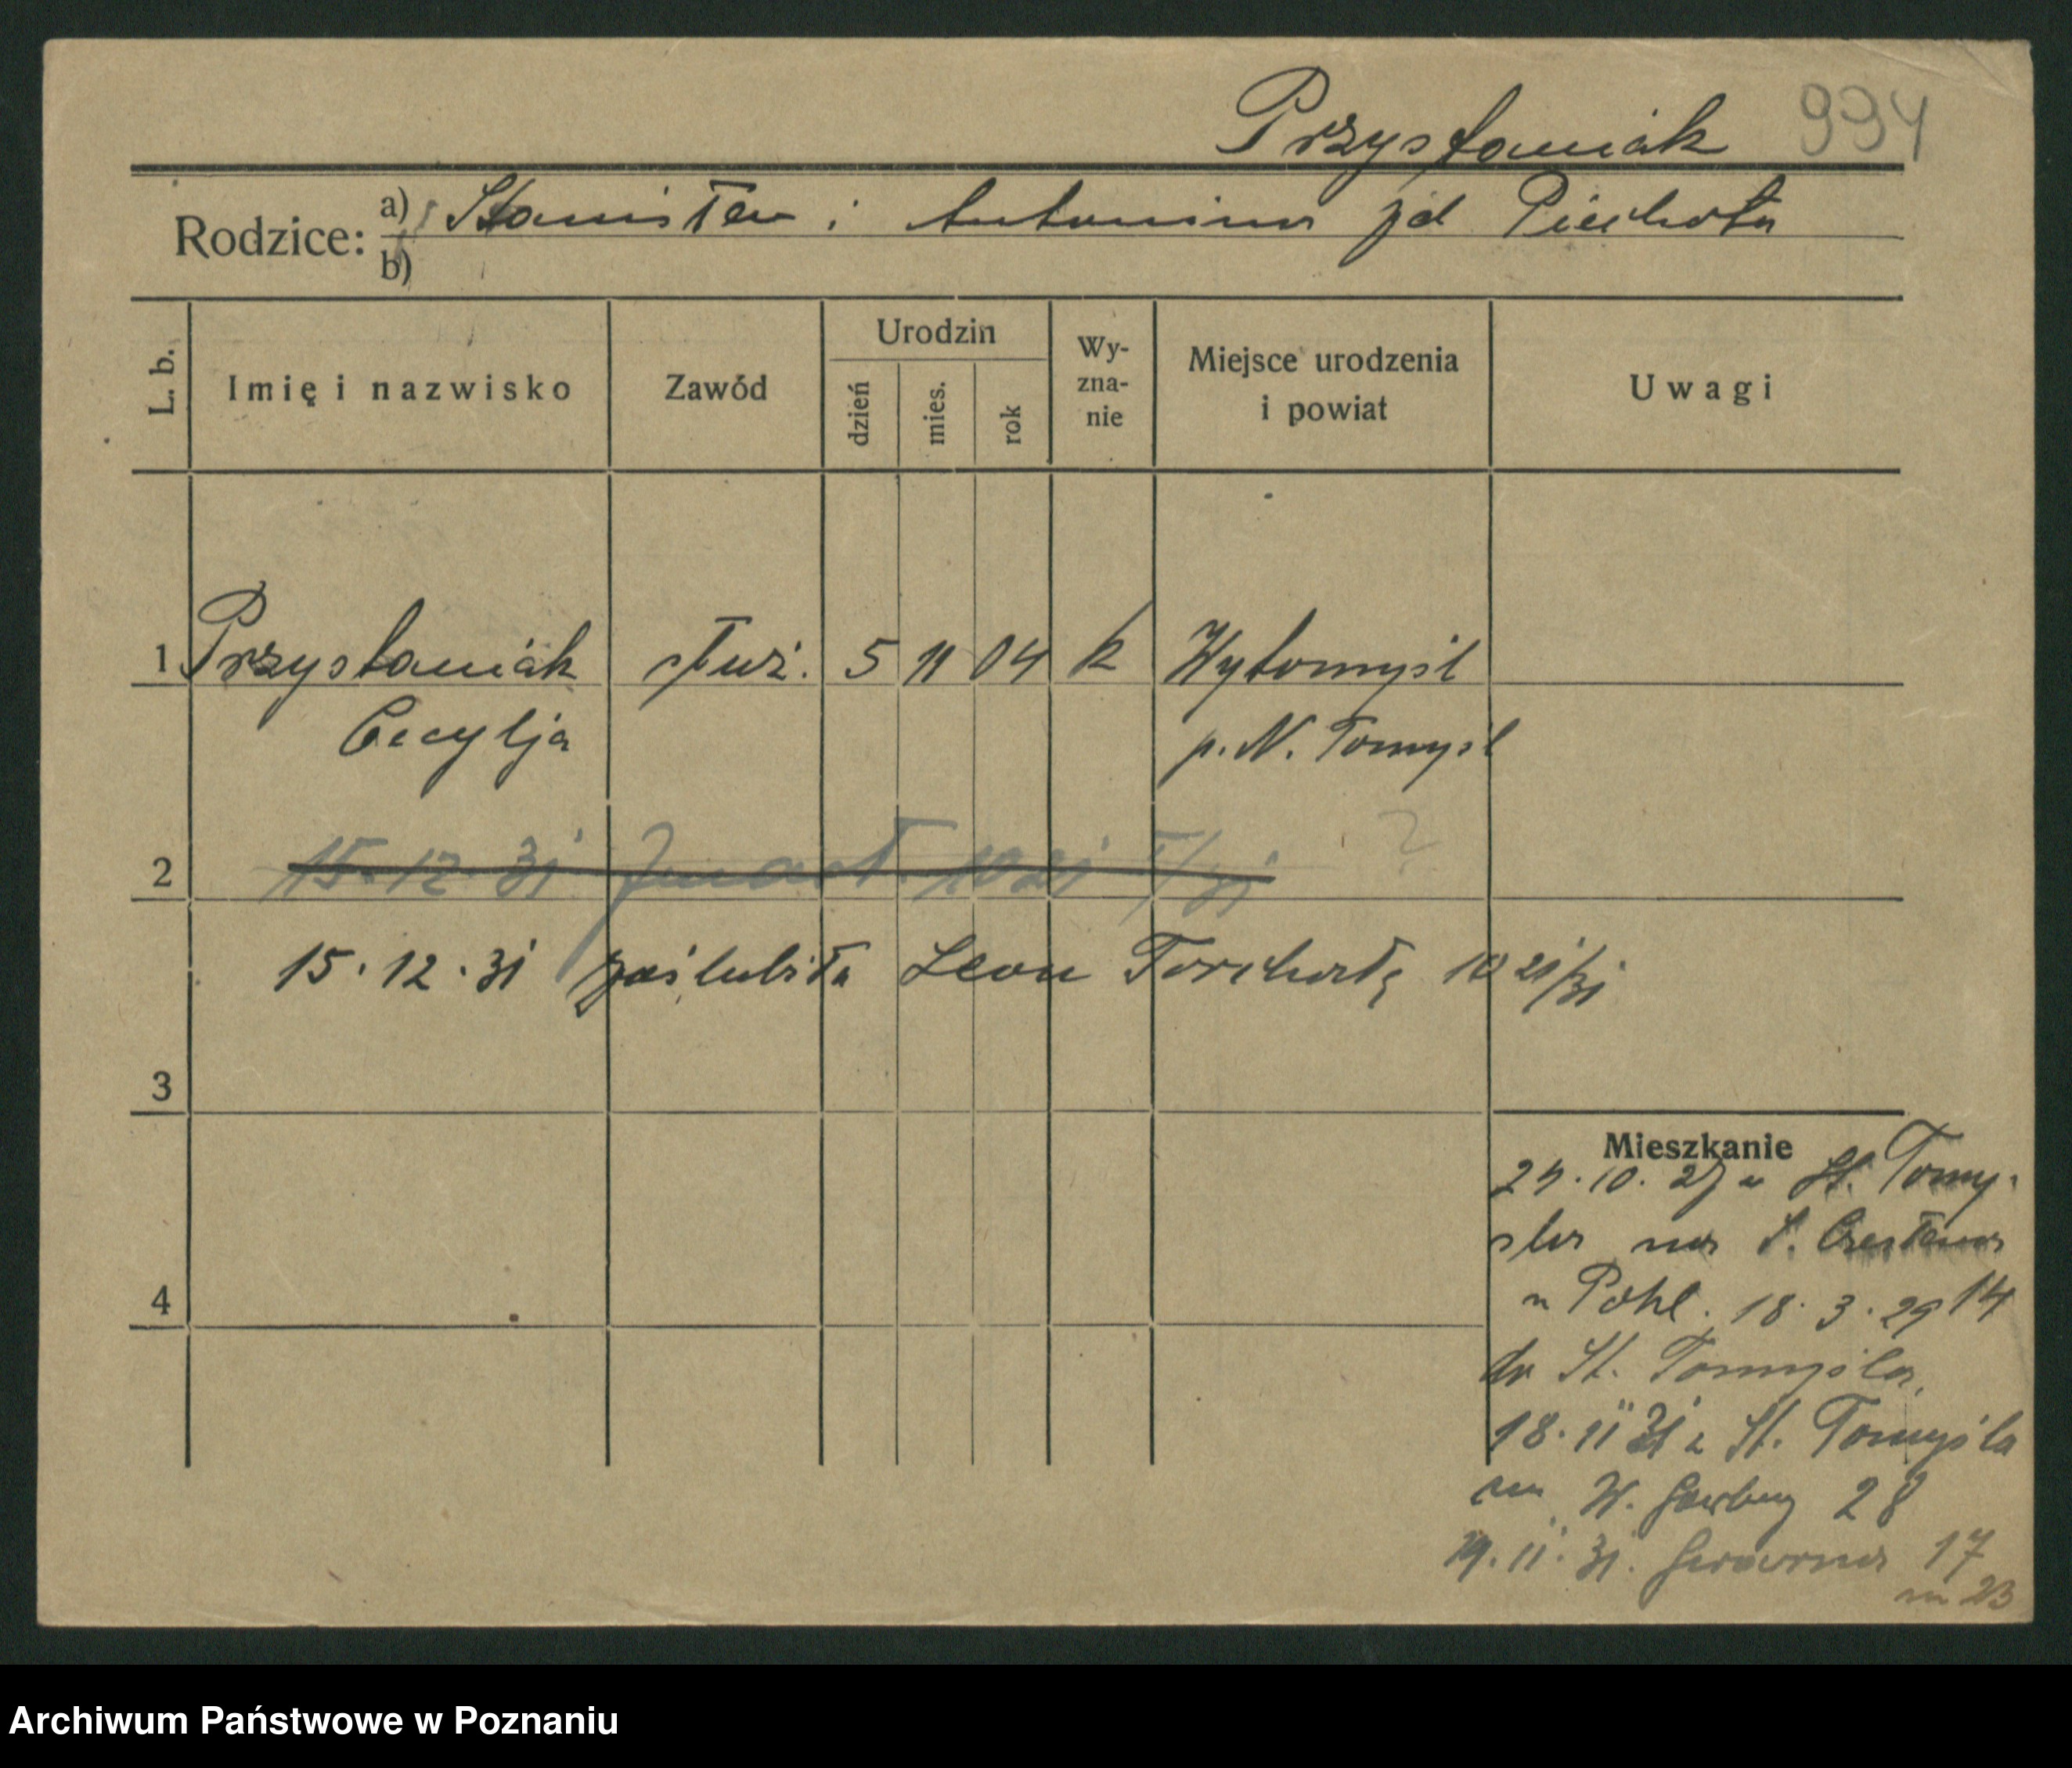 Przysłaniak 994
Rodzice: a) Stanisław i Antonina zd Piechota
b)
L. b. Imię i nazwisko Zawód Urodzin dzień mies. rok Wy-zna-nie Miejsce urodzenia i powiat Uwagi
1 Przysłaniak służ. 5 11 04 k Wytomyśl
Cecylja p. N. Tomyśl
2 15.12.31 1021
15.12.31 zaślubiła Leon 1021/31
3
Mieszkanie
10. 27 z St. Tomy-
śla na S. Czesława
4
u Pohl. 18.3.29 14
do St. Tomyśla
18.11 31 z St. Tomyśla
na W. Garbary 28
19.11.31. 17
m 23
Archiwum Państwowe w Poznaniu